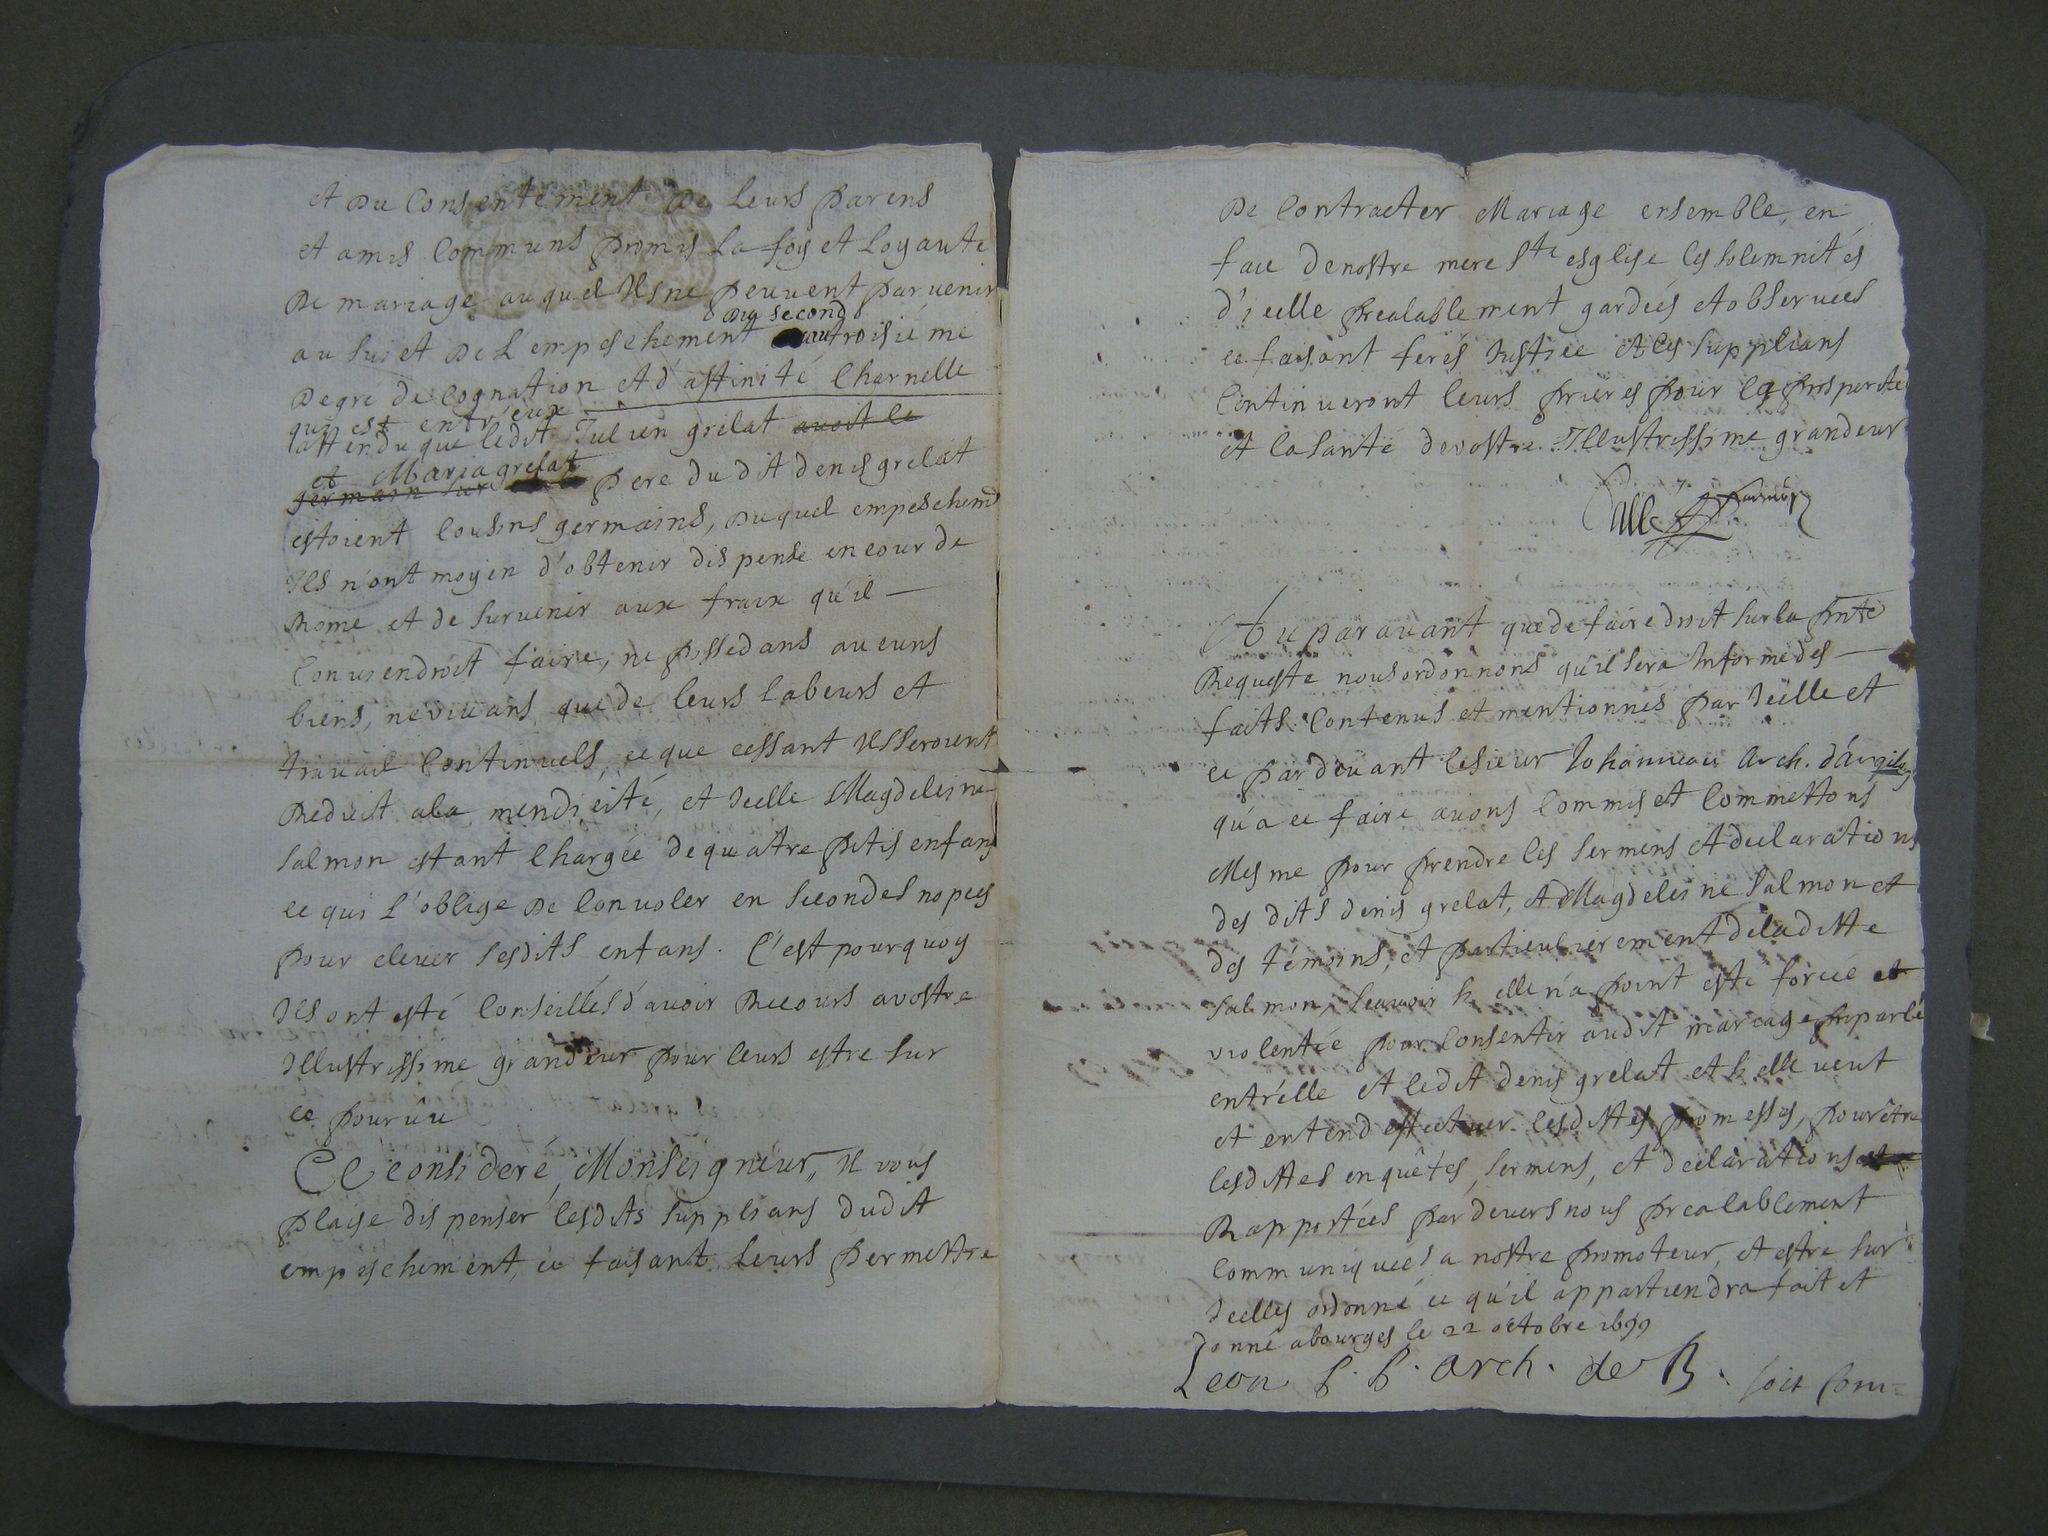 et du Consentement de leurs parens
et amis Communs promis La foy et Loyauté
de mariage auquel Ils ne peuvent parvenir
au sujet de L'empeschement
du second
au troisiéme
degré de Cognation et d'affinité Charnelle
qui est entr'eux
attendu que ledit Julien grelat avoit le
et Maria grelat
germain sur pere dudit denis grelat
estoient Cousins germains, duquel empeschemt
Ils n'ont moyen d'obtenir dispense en cour de
Rome et de survenir aux fraix qu'il
Conviendroit faire, ne possedans aucuns
biens, ne vivans que de leurs labeurs et
travail Continuels, ce que cessant Ils seroient
Reduit a la mendicité, et Icelle Magdeleine
salmon estant Chargée de quatre petis enfans
ce qui L'oblige de Convoler en secondes nopces
pour elever sesdits enfans. C'est pourquoy
Ils ont esté Conseillés d'avoir Recours a vostre
Illustrissime grandeur pour leurs estre sur
ce pourvu
Ce consideré, Monseigneur, Il vous
plaise dispenser lesdits supplians dudit
empeschement, ce faisant leurs permettre
de Contracter Mariage ensemble, en
face de nostre mere Ste esglise les solemnités
d'icelle prealablement gardées et observees
ce faisant ferés Justice et les supplians
Continueront leurs prieres pour la prosperité
et la santé de vostre Illustrissime grandeur
Auparavant que de faire droit sur la pnte
Requeste nous ordonnons qu'il sera Informé des
faits Contenus et mentionnés par Icelle et
ce pardevant le sieur Johanneau Arch. d'argily
qu'a ce faire avons Commis et Commettons
Mesme pour prendre les sermens et declarations
des dits denis grelat, et Magdeleine salmon et
des témoins, et particulierement de laditte
salmon, scavoir sy elle n'a point esté forcée et
violentée pour Consentir audit mariage pnparlé
entr'elle et ledit denis grelat et sy elle veut
et entend effectuer lesdittes promesses, pour être
lesdittes enquêtes, sermens, et declarations
Rapportées pardevers nous prealablement
Communiquées a nostre promoteur, et estre sur
Icelles ordonné ce qu'il appartiendra fait et
donné a bourges le 22 octobre 1699
Leon P. P. arch. de B. soit Com-